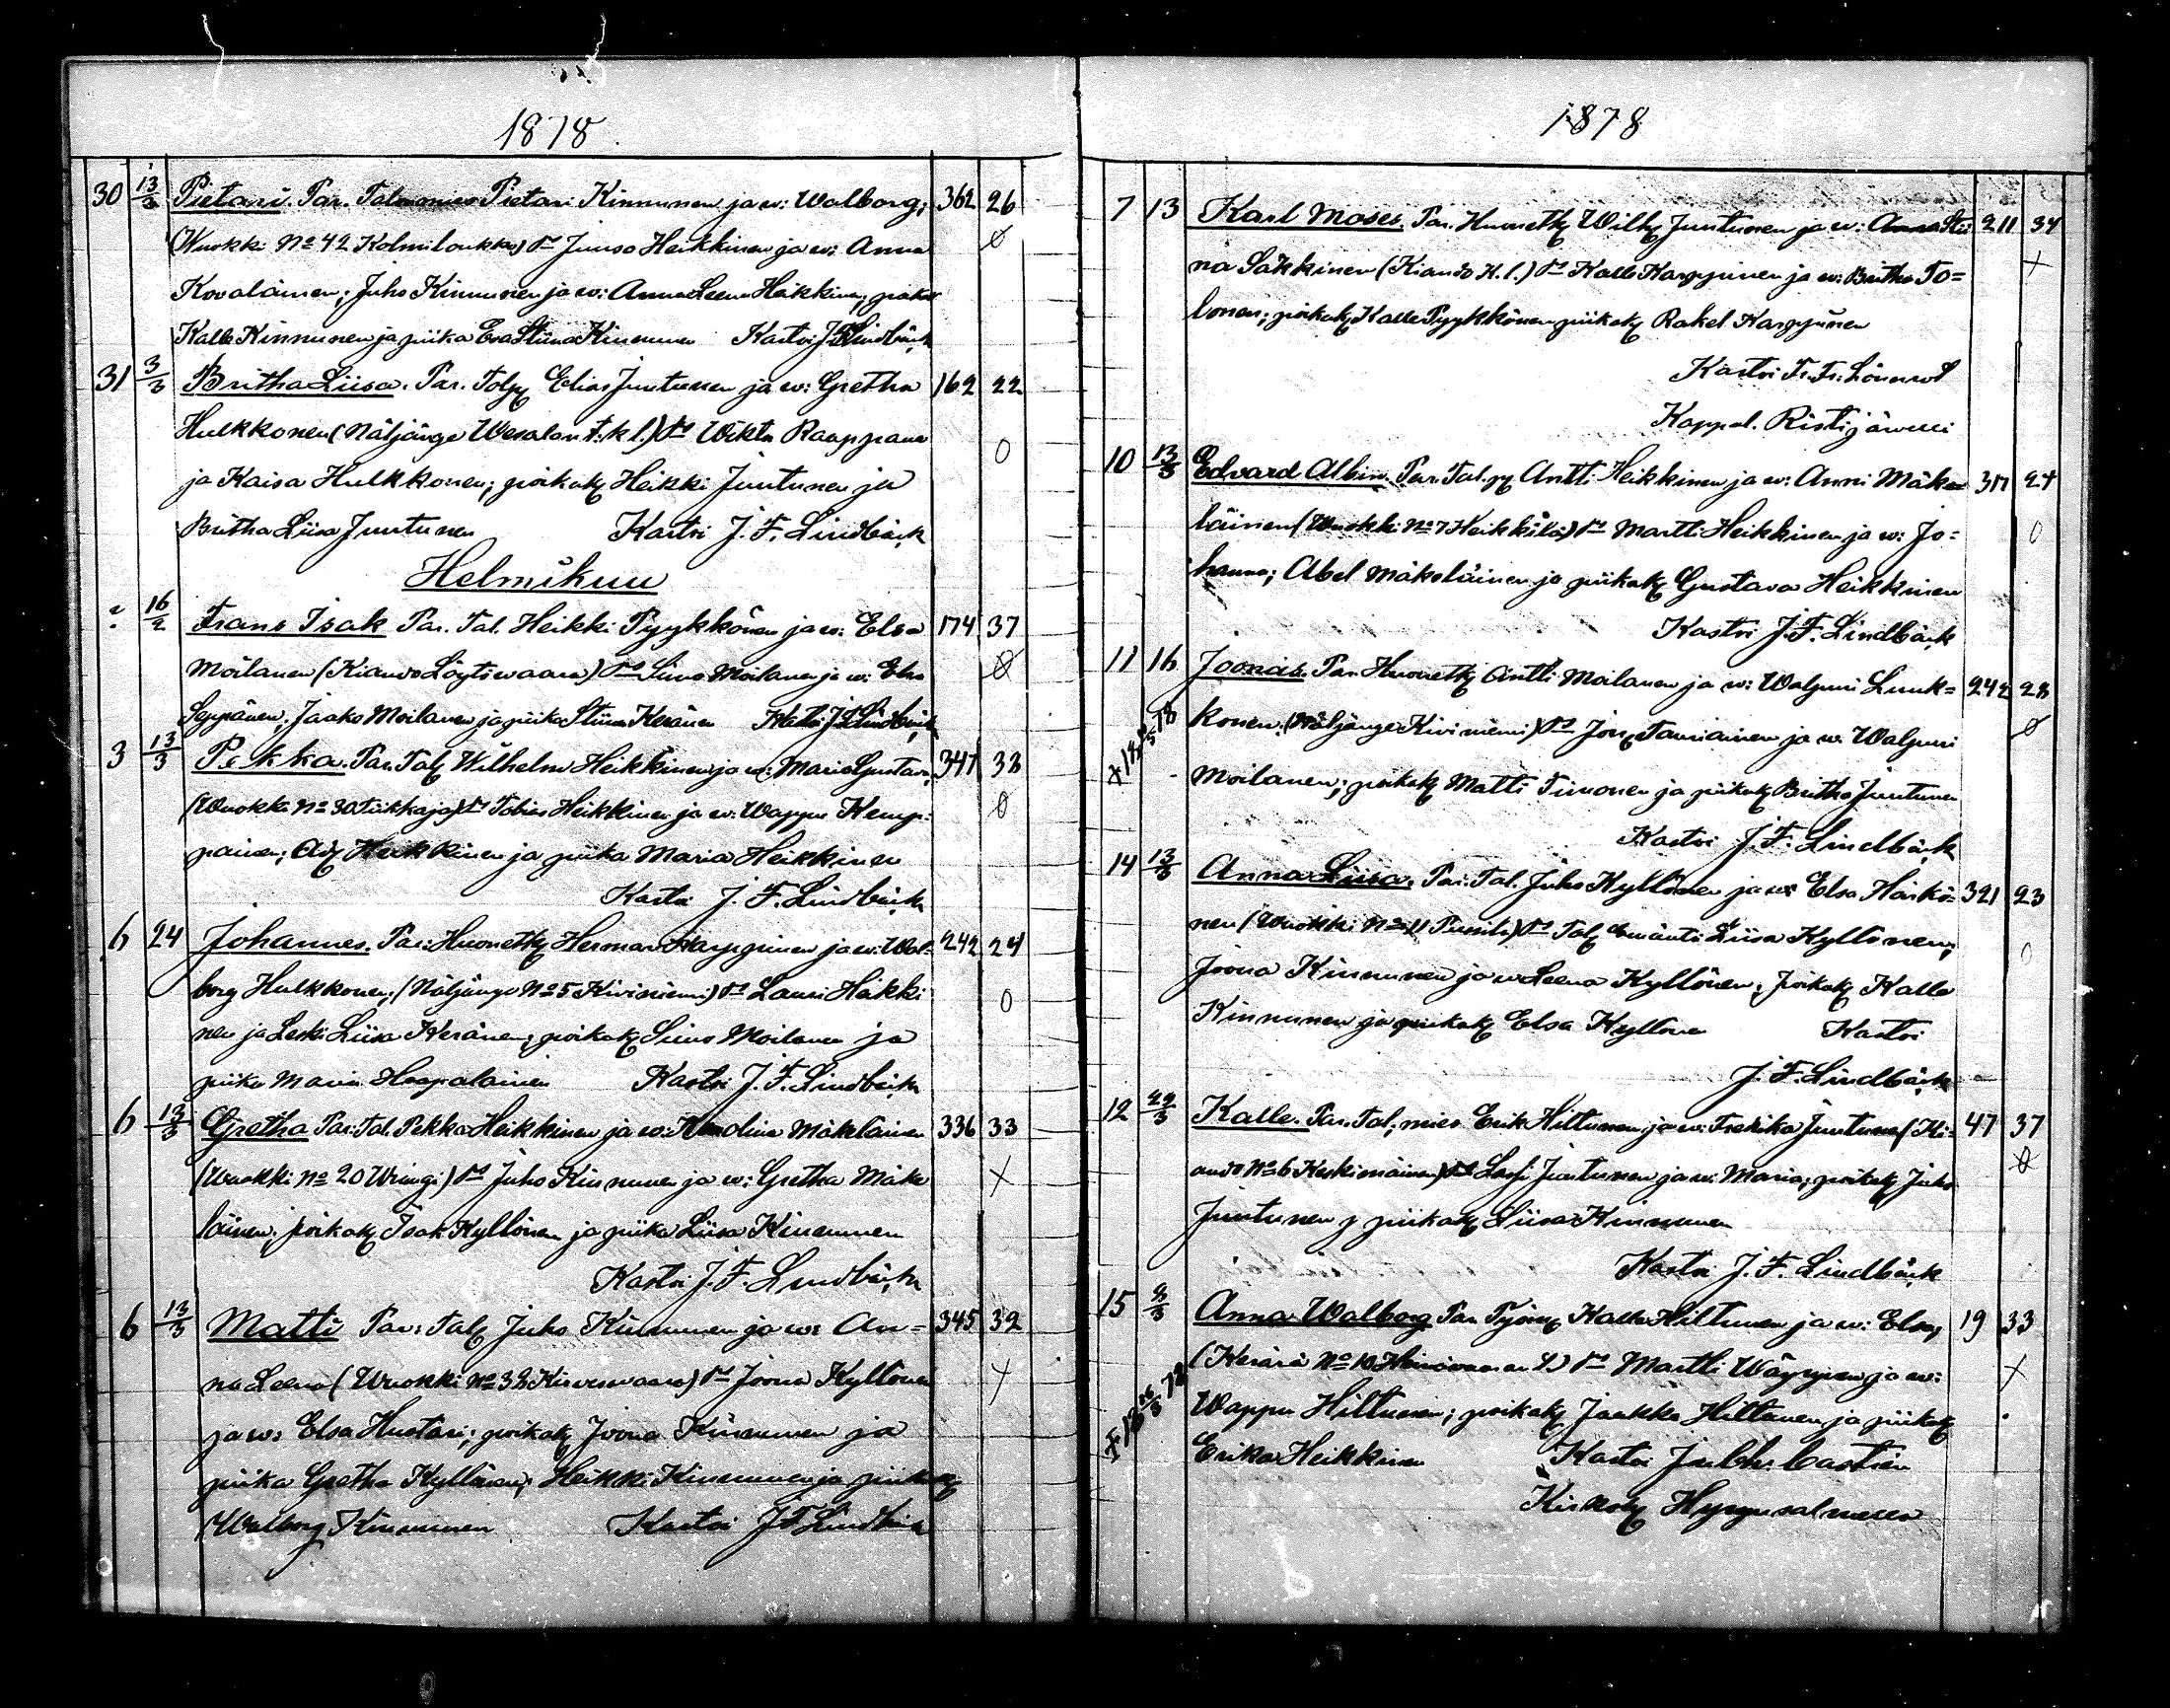 1878.
30 13/3 Pietari. Par. Talonmies Pietari Kinnunen ja w: Walborg; 362 26
(Wuokki No 42 Kolmiloukko) Tt Juuso Heikkinen ja w: Anna
Kovalainen; Juho Kinnunen ja w: Anna Leena Heikkinen; poika
Kalle Kinnunen ja piika Eva Stiina Kinnunen Kastoi J.F. Lindbäck
31 3/3 Britha Liisa. Par. Elias Juntunen ja w: Gretha 162 22
Hulkkonen (Näljänge Wesalan t.k.l.) Tt Wiktor Raappana 0
ja Kaisa Hulkkonen; poikak Heikki Juntunen ja
Britha Liisa Juntunen Kastoi J. F. Lindbäck
Helmikuu
2 16/2 Frans Isak Par. Tal. Heikki Pyykkönen ja w: Elsa 174 37
Moilanen (Kiando Löytiwaara) Tt Simo Moilanen ja w: Elsa
Seppänen; Jaako Moilanen ja piika Stiina Keränen Kastoi J.F. Lindbäck
3 13/3 Pekka. Par. Tal Wilhelm Heikkinen ja w: Maria Gustava 341 38
(Wuokki No 30 Tiikkaja) Tt Tobias Heikkinen ja w: Wappu Kemp-
painen; Heikkinen ja piika Maria Heikkinen
Kastoi J. F. Lindbäck
6 24 Johannes. Par: Huonetk Herman Karppinen ja w: Wal- 242 24
borg Hulkkonen; (Näljänge No 5 Kiviniemi) Tt Lauri Heikki 0
nen ja Leski Liisa Keränen; poikak Simo Moilanen ja
piika Maria Haapalainen Kastoi J. F. Lindbäck
6 13/3 Gretha Par: Tal. Pekka Heikkinen ja w: Mäkeläinen 336 33
(Wuokki No 20 Wiinigi) Tt Juho Kinnunen ja w: Gretha Mäke X
läinen; poikak Isak Kyllönen ja piika Liisa Kinnunen
Kastoi J. F. Lindbäck
6 13/3 Matti Par: Tal Juho Kinnunen ja w: An= 345 32
na Leena (Wuokki No 32 Kirveswaara) Tt Joona Kyllönen X
ja w: Elsa Huotari; poikak Joona Kinnunen ja
piika Gretha Kyllönen; Heikki Kinnunen ja piikak
Walborg Kinnunen Kastoi J F Lindbäck
1878
7 13 Karl Moses. Par. Huonetk Wilh Juntunen ja w: Anna Stii 211 34
na Säkkinen (Kiando K.l.) Tt Kalle Karppinen ja w: Britha To= X
lonen; poikak Kalle Pyykkönen piikak Rakel Karppinen
Kastoi Fr. Fr. Lönnrot
Kappal. Ristijärwellä
10 13/3 Edvard Albin. Par. Tal.p Antti Heikkinen ja w: Anni Mäke= 311 24
läinen (Wuokki No 7 Heikkilä) Tt Martti Heikkinen ja w: Jo= 0
hanna; Abel Mäkeläinen ja piikak Gustava Heikkinen
Kastoi J. F. Lindbäck
11 16 Joonas. Par. Huonetk Antti Moilanen ja w: Walpuri Luuk= 242 28
konen. (Näljänge Kiviniemi) Tt Jon Tauriainen ja w: Walpuri
Moilanen; poikak Matti Timonen ja piikak Britha Juntunen
Kastoi J. F. Lindbäck
14 13/3 Anna Liisa. Par. Tal. Juho Kyllönen ja w: Elsa Härkö= 321 23
nen (Wuokki No 11) Tt Tal Emäntä Liisa Kyllönen; 0
Joona Kinnunen ja w Leena Kyllönen; poikak Kalle
Kinnunen ja piikak Elsa Kyllönen Kastoi
J. F. Lindbäck
12 22/3 Kalle. Par. Tal, mies Erik Hiltunen ja w: Fredika Juntunen (Ki= 47 37
ando No 6 Keskimäinen) Tt Lassi Juntunen ja w: Maria; poikak Juho
Juntunen j piikak Liisa Kinnunen
Kastoi J. F. Lindbäck
15 8/3 Anna Walborg Par. Kalle Hiltunen ja w: Elsa, 19 33
(Kerärä No 10) Tt Martti Wäyrynen ja w: X
Wappu Hiltunen; poikak Jaakko Hiltunen ja piikak
Erika Heikkinen Kastoi Castrén
Kirkok Hyrynsalmella